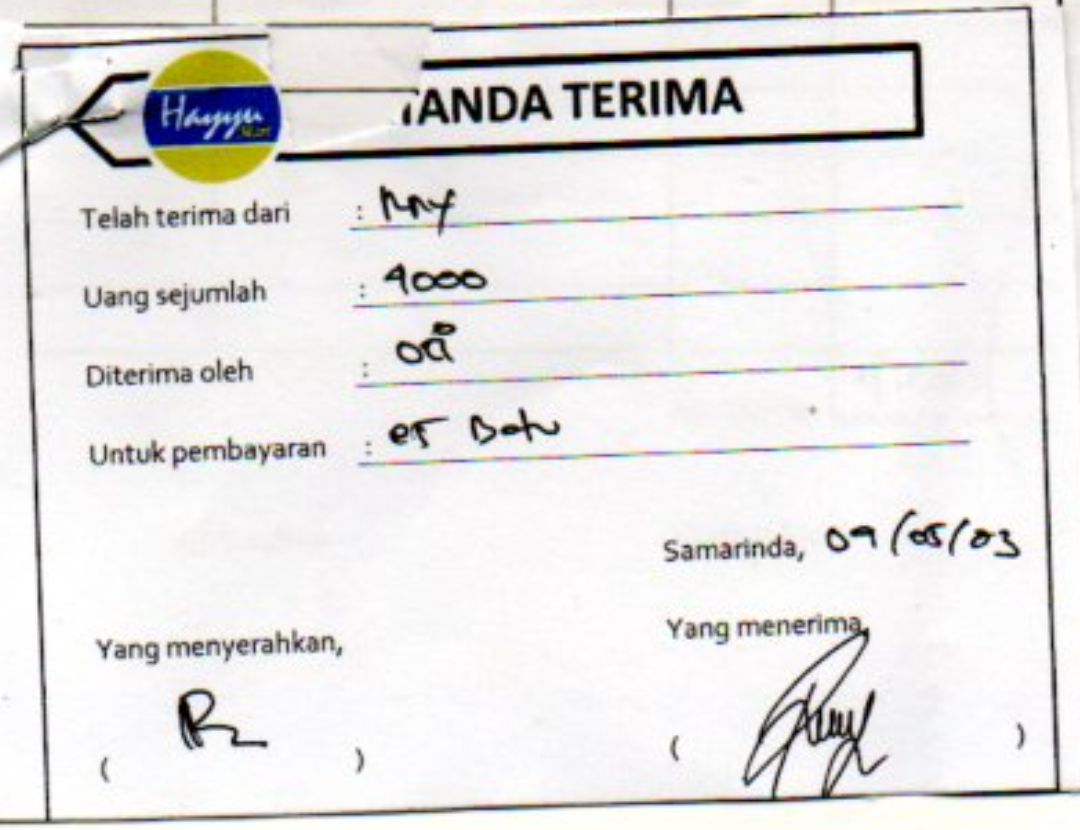 Hayyu
TANDA TERIMA
Telah terima dari :
Uang sejumlah : 4000
Diterima oleh :
Untuk pembayaran : es Batu
Samarinda, 09/05/03
Yang menyerahkan, Yang menerima,
( ) ( )